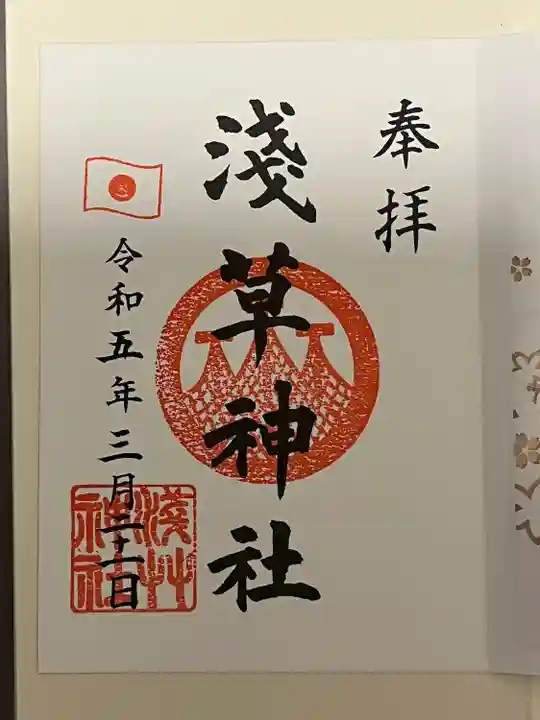 奉拝
淺草神社
令和五年三月二十一日
淺艸
神社